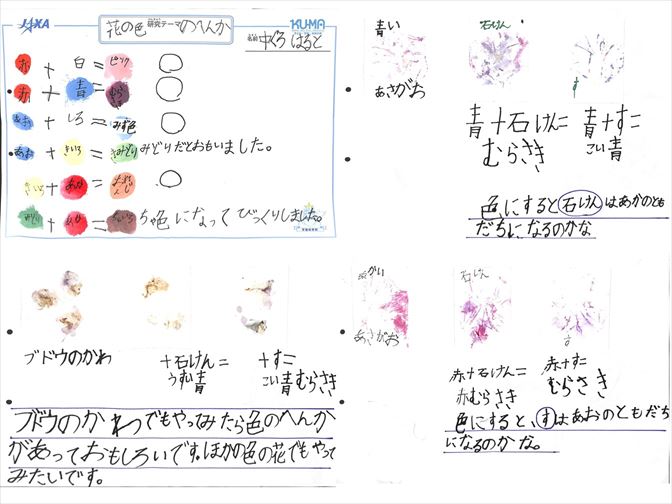 JAXA
研究テーマ
花の色のへんか
KUMA
名前
はると
赤 + 白 = ピンク
赤 + 青 = むらさき
あお + しろ = みず色
あお + きいろ = きみどり みどりだとおもいました。
きいろ + あか = おれんじ
みどり + あか = ちゃいろ ちゃ色になってびっくりしました。
青い
あさがお
石けん
す
青+石けん=
むらさき
青+す=
こい青
色にすると石けんはあかのとも
だちになるのかな
ブドウのかわ
+石けん=
うすい青
+す=
こい青むらさき
ブドウのかわでもやってみたら色のへんか
があっておもしろいです。ほかの色の花でもやって
みたいです。
あかい
あさがお
石けん
す
赤+石けん=
赤むらさき
赤+す=
むらさき
色にすると、すはあおのともだち
になるのかな。